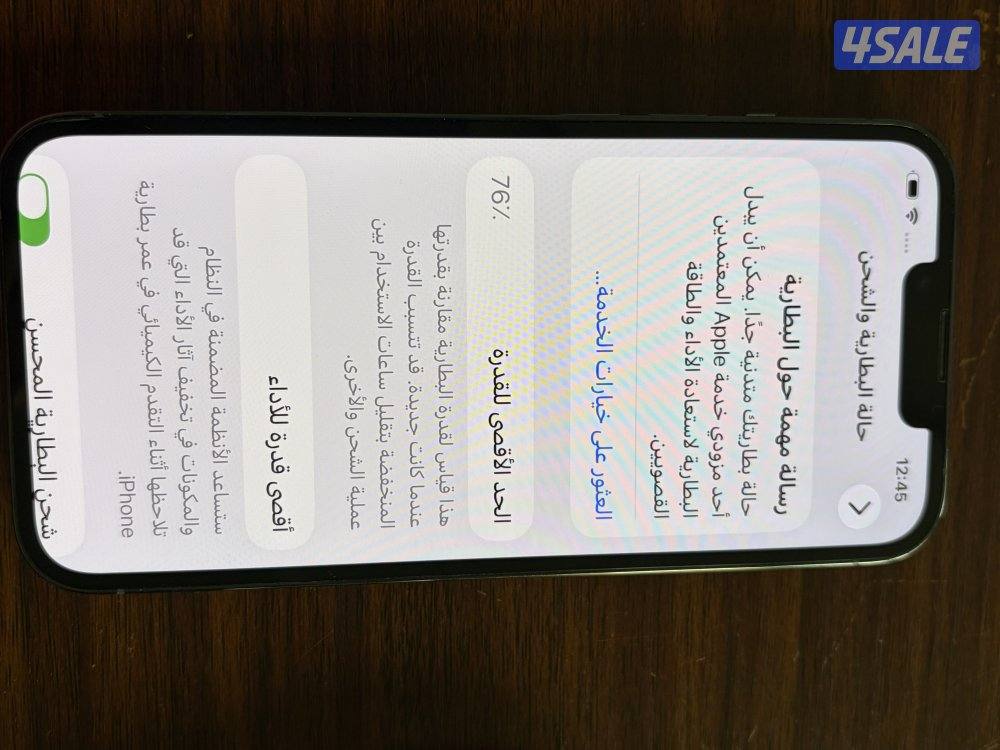 4SALE
12:45
حالة البطارية والشحن
رسالة مهمة حول البطارية
حالة بطاريتك متدنية جدًا. يمكن أن يبدل
أحد مزودي خدمة Apple المعتمدين
البطارية لاستعادة الأداء والطاقة
القصويين.
العثور على خيارات الخدمة...
الحد الأقصى للقدرة
76٪
هذا قياس لقدرة البطارية مقارنة بقدرتها
عندما كانت جديدة. قد تتسبب القدرة
المنخفضة بتقليل ساعات الاستخدام بين
عملية الشحن والأخرى.
أقصى قدرة للأداء
ستساعد الأنظمة المضمنة في النظام
والمكونات في تخفيف آثار الأداء التي قد
تلاحظها أثناء التقدم الكيميائي في عمر بطارية
iPhone.
شحن البطارية المحسن